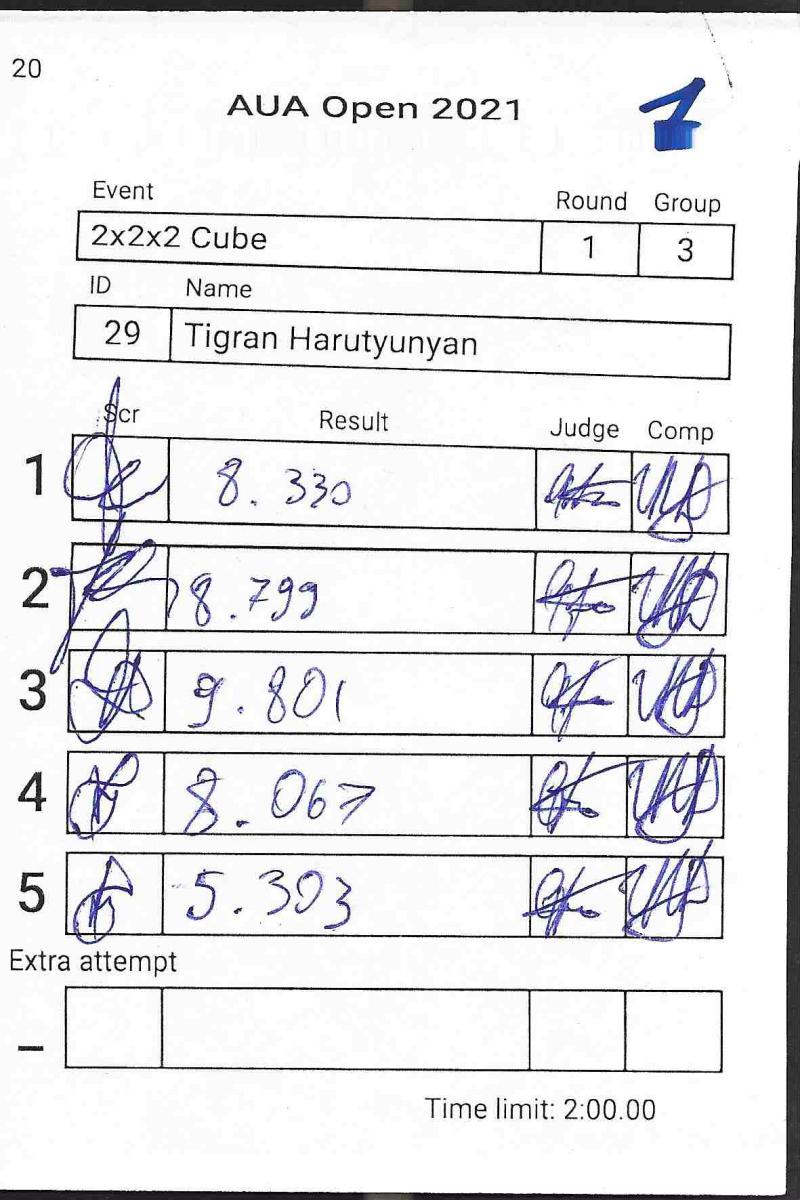 20
AUA Open 2021
1
Event Round Group
2x2x2 Cube 1 3
ID Name
29 Tigran Harutyunyan
Scr Result Judge Comp
1 8.330
2 8.799
3 9.801
4 8.067
5 5.303
Extra attempt
_
Time limit: 2:00.00